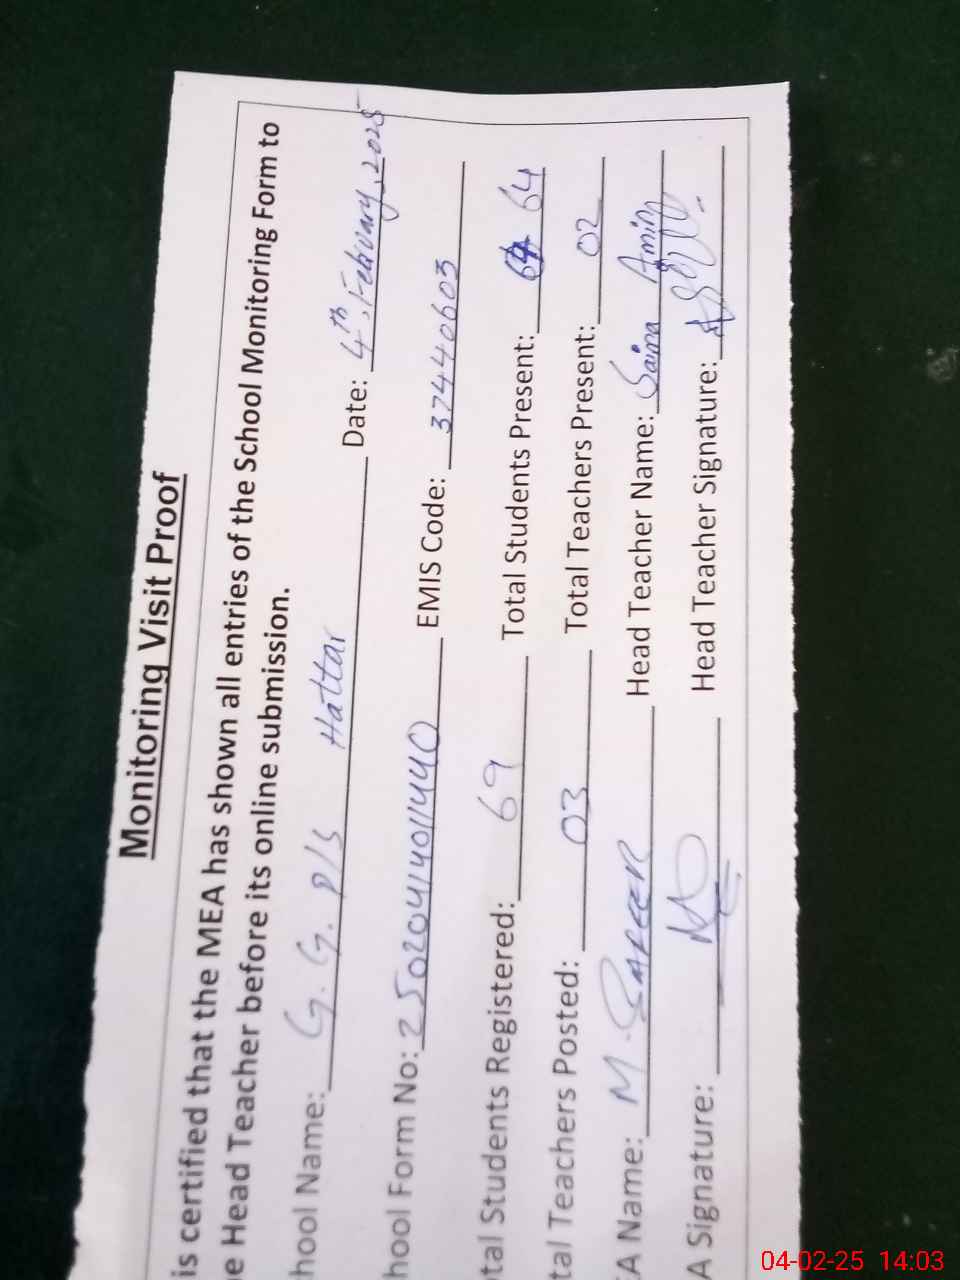 Monitoring Visit Proof
is certified that the MEA has shown all entries of the School Monitoring Form to
e Head Teacher before its online submission.
hool Name: G. G. P/S Hattar Date: 4th, February, 2025
hool Form No: 25020414011440 EMIS Code: 37440603
tal Students Registered: 69 Total Students Present: 64
tal Teachers Posted: 03 Total Teachers Present: 02
A Name: M. Head Teacher Name: Saima Amin
A Signature: Head Teacher Signature:
04-02-25 14:03